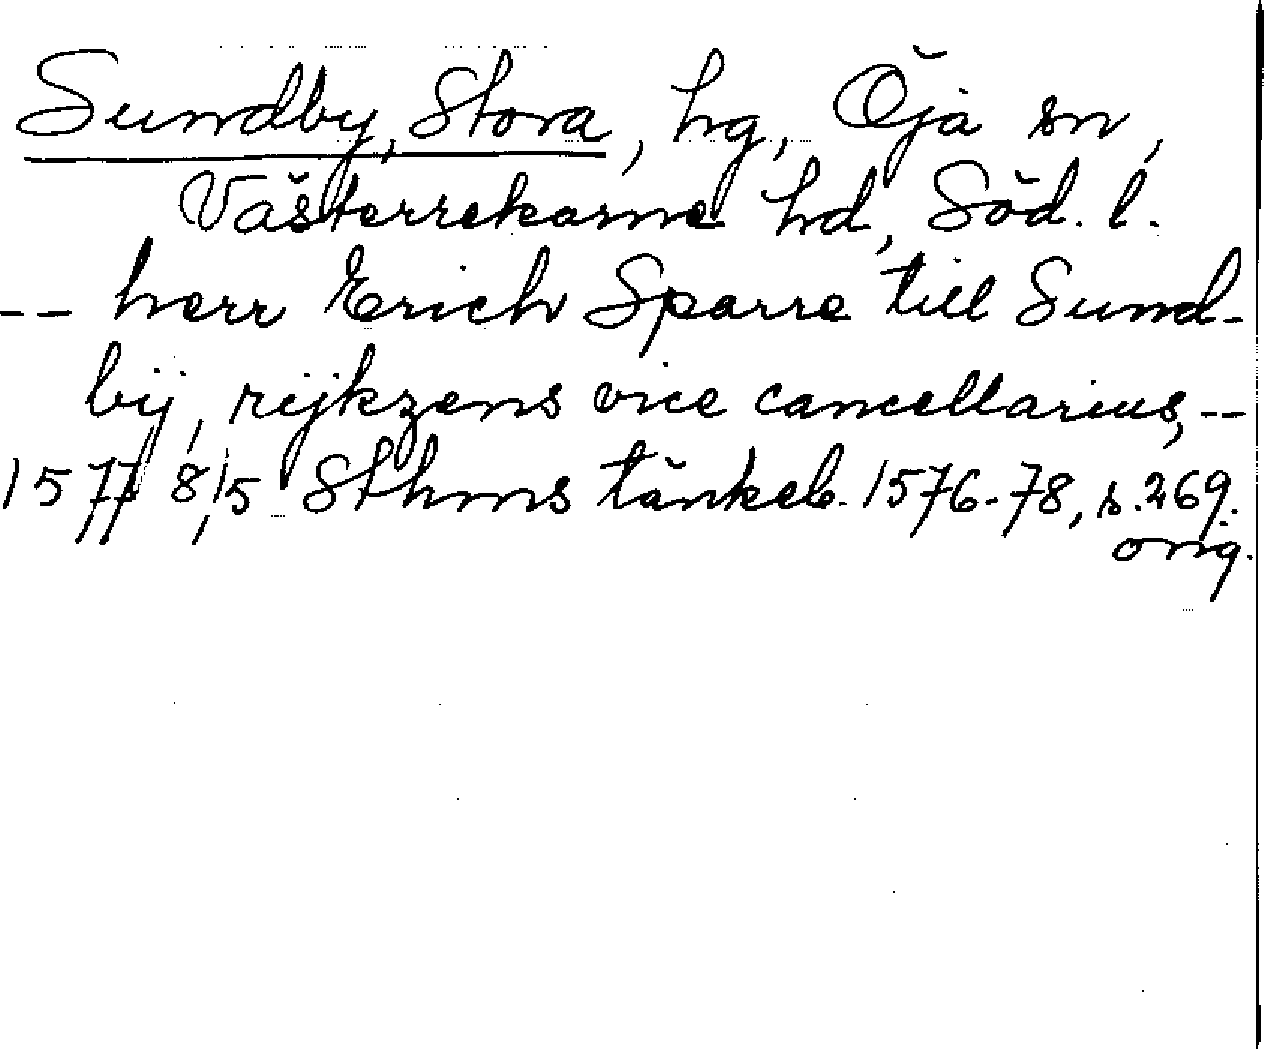 Sundby, Stora, hg, Öja sn,
Västerrekarne hd, Söd. l.
-- herr Erich Sparre till Sund-
bÿ, rijkzens vice cancellarius, --
1577 8/5 Sthms tänkeb. 1576-78, s. 269.
orig.